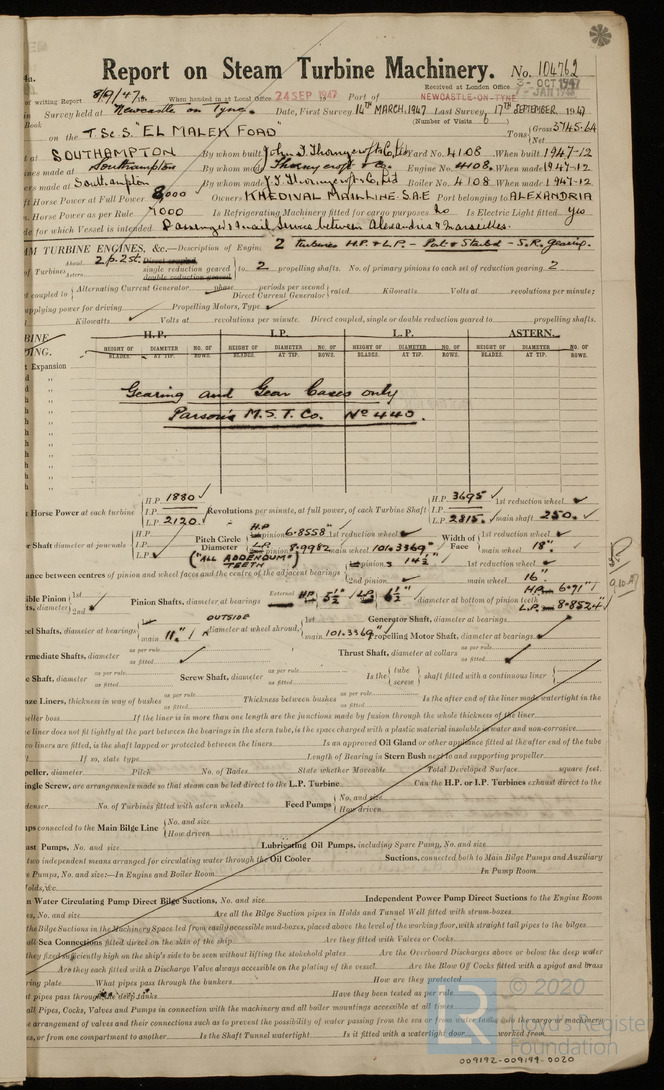 4a.
Report on Steam Turbine Machinery. No. 104762
Received at London Office 3-OCT 1947
7-JAN 1948
of writing Report 8/9/47 When handed in at Local Office 24 SEP 1947 Port of NEWCASTLE-ON-TYNE
Survey held at Newcastle on Tyne. Date, First Survey 14TH MARCH, 1947 Last Survey, 17TH SEPTEMBER, 1947
Book (Number of Visits 6)
on the T.S.S. "EL MALEK FOAD" Tons {Gross 5745.64
Net
at SOUTHAMPTON By whom built John I. Thornycroft & Co, Ltd Yard No. 4108. When built 1947-12
ines made at Southampton By whom made Thornycroft & Co. Engine No. 4108. When made 1947-12
ers made at Southampton By whom made J. I. Thornycroft & Co, Ltd Boiler No. 4108 When made 1947-12
ft Horse Power at Full Power 8,000 Owners KHEDIVAL MAIL LINE. S.A.E Port belonging to ALEXANDRIA
. Horse Power as per Rule 7000 Is Refrigerating Machinery fitted for cargo purposes No Is Electric Light fitted Yes
de for which Vessel is intended Passenger & mail service between Alexandria & Marseilles.
AM TURBINE ENGINES, &c.—Description of Engines 2 turbines H.P. & L.P. – Port & Starbd – S.R. gearing.
of Turbines Ahead 2 p. 2 st. Direct coupled, single reduction geared double reduction geared} to 2 propelling shafts. No. of primary pinions to each set of reduction gearing 2
t coupled to {Alternating Current Generator phase periods per second
Direct Current Generator} rated Kilowatts Volts at revolutions per minute;
upplying power for driving Propelling Motors, Type
Kilowatts Volts at revolutions per minute. Direct coupled, single or double reduction geared to propelling shafts.
BINE H.P. I.P. L.P. ASTERN.
ING. HEIGHT OF BLADES. DIAMETER AT TIP. NO. OF ROWS. HEIGHT OF BLADES. DIAMETER AT TIP. NO. OF ROWS. HEIGHT OF BLADES. DIAMETER AT TIP. NO. OF ROWS. HEIGHT OF BLADES. DIAMETER AT TIP. NO. OF ROWS.
Expansion
Gearing and Gear Cases only
Parson's M.S.T. Co. No 440.
Horse Power at each turbine {H.P. 1880 I.P. L.P. 2120. Revolutions per minute, at full power, of each Turbine Shaft {H.P. 3695 I.P. L.P. 2815. 1st reduction wheel main shaft 250.
r Shaft diameter at journals {H.P. I.P. L.P. Pitch Circle Diameter {H.P. pinion 6.8558" 1st reduction wheel L.P. pinion 8.9982 main wheel 101.3369" Width of Face {1st reduction wheel main wheel 18".
("ALL ADDENDUM" TEETH)
ance between centres of pinion and wheel faces and the centre of the adjacent bearings {pinion 14 1/2" 2nd pinion 1st reduction wheel main wheel 16".
ible Pinion {1st 2nd Pinion Shafts, diameter at bearings External H.P. 5 1/2" L.P. 6 1/2" diameter at bottom of pinion teeth H.P. 6.71" L.P. 8.8524"
eel Shafts, diameter at bearings {1st main 11." OUTSIDE diameter at wheel shroud, {1st main 101.3369" Generator Shaft, diameter at bearings
Propelling Motor Shaft, diameter at bearings
rmediate Shafts, diameter as per rule as fitted Thrust Shaft, diameter at collars as per rule as fitted
e Shaft, diameter as per rule as fitted Screw Shaft, diameter as per rule as fitted Is the {tube screw} shaft fitted with a continuous liner
nze Liners, thickness in way of bushes as per rule as fitted Thickness between bushes as per rule as fitted Is the after end of the liner made watertight in the
peller boss If the liner is in more than one length are the junctions made by fusion through the whole thickness of the liner
e liner does not fit tightly at the part between the bearings in the stern tube, is the space charged with a plastic material insoluble in water and non-corrosive
vo liners are fitted, is the shaft lapped or protected between the liners Is an approved Oil Gland or other appliance fitted at the after end of the tube
If so, state type Length of Bearing in Stern Bush next to and supporting propeller
peller, diameter Pitch No. of Blades State whether Moveable Total Developed Surface square feet.
ingle Screw, are arrangements made so that steam can be led direct to the L.P. Turbine Can the H.P. or I.P. Turbines exhaust direct to the
denser No. of Turbines fitted with astern wheels Feed Pumps {No. and size How driven
ps connected to the Main Bilge Line {No. and size How driven
ast Pumps, No. and size Lubricating Oil Pumps, including Spare Pump, No. and size
two independent means arranged for circulating water through the Oil Cooler Suctions, connected both to Main Bilge Pumps and Auxiliary
e Pumps, No. and size:—In Engine and Boiler Room In Pump Room
olds, &c.
n Water Circulating Pump Direct Bilge Suctions, No. and size Independent Power Pump Direct Suctions to the Engine Room
es, No. and size Are all the Bilge Suction pipes in Holds and Tunnel Well fitted with strum-boxes
the Bilge Suctions in the Machinery Space led from easily accessible mud-boxes, placed above the level of the working floor, with straight tail pipes to the bilges
all Sea Connections fitted direct on the skin of the ship Are they fitted with Valves or Cocks
they fixed sufficiently high on the ship's side to be seen without lifting the stokehold plates Are the Overboard Discharges above or below the deep water
Are they each fitted with a Discharge Valve always accessible on the plating of the vessel Are the Blow Off Cocks fitted with a spigot and brass
ring plate What pipes pass through the bunkers How are they protected
t pipes pass through the deep tanks Have they been tested as per rule
all Pipes, Cocks, Valves and Pumps in connection with the machinery and all boiler mountings accessible at all times
e arrangement of valves and their connections such as to prevent the possibility of water passing from the sea or from water tanks into the cargo or machinery
es, or from one compartment to another Is the Shaft Tunnel watertight Is it fitted with a watertight door worked from
© 2020
Lloyd's Register
Foundation
009192-009199-0020